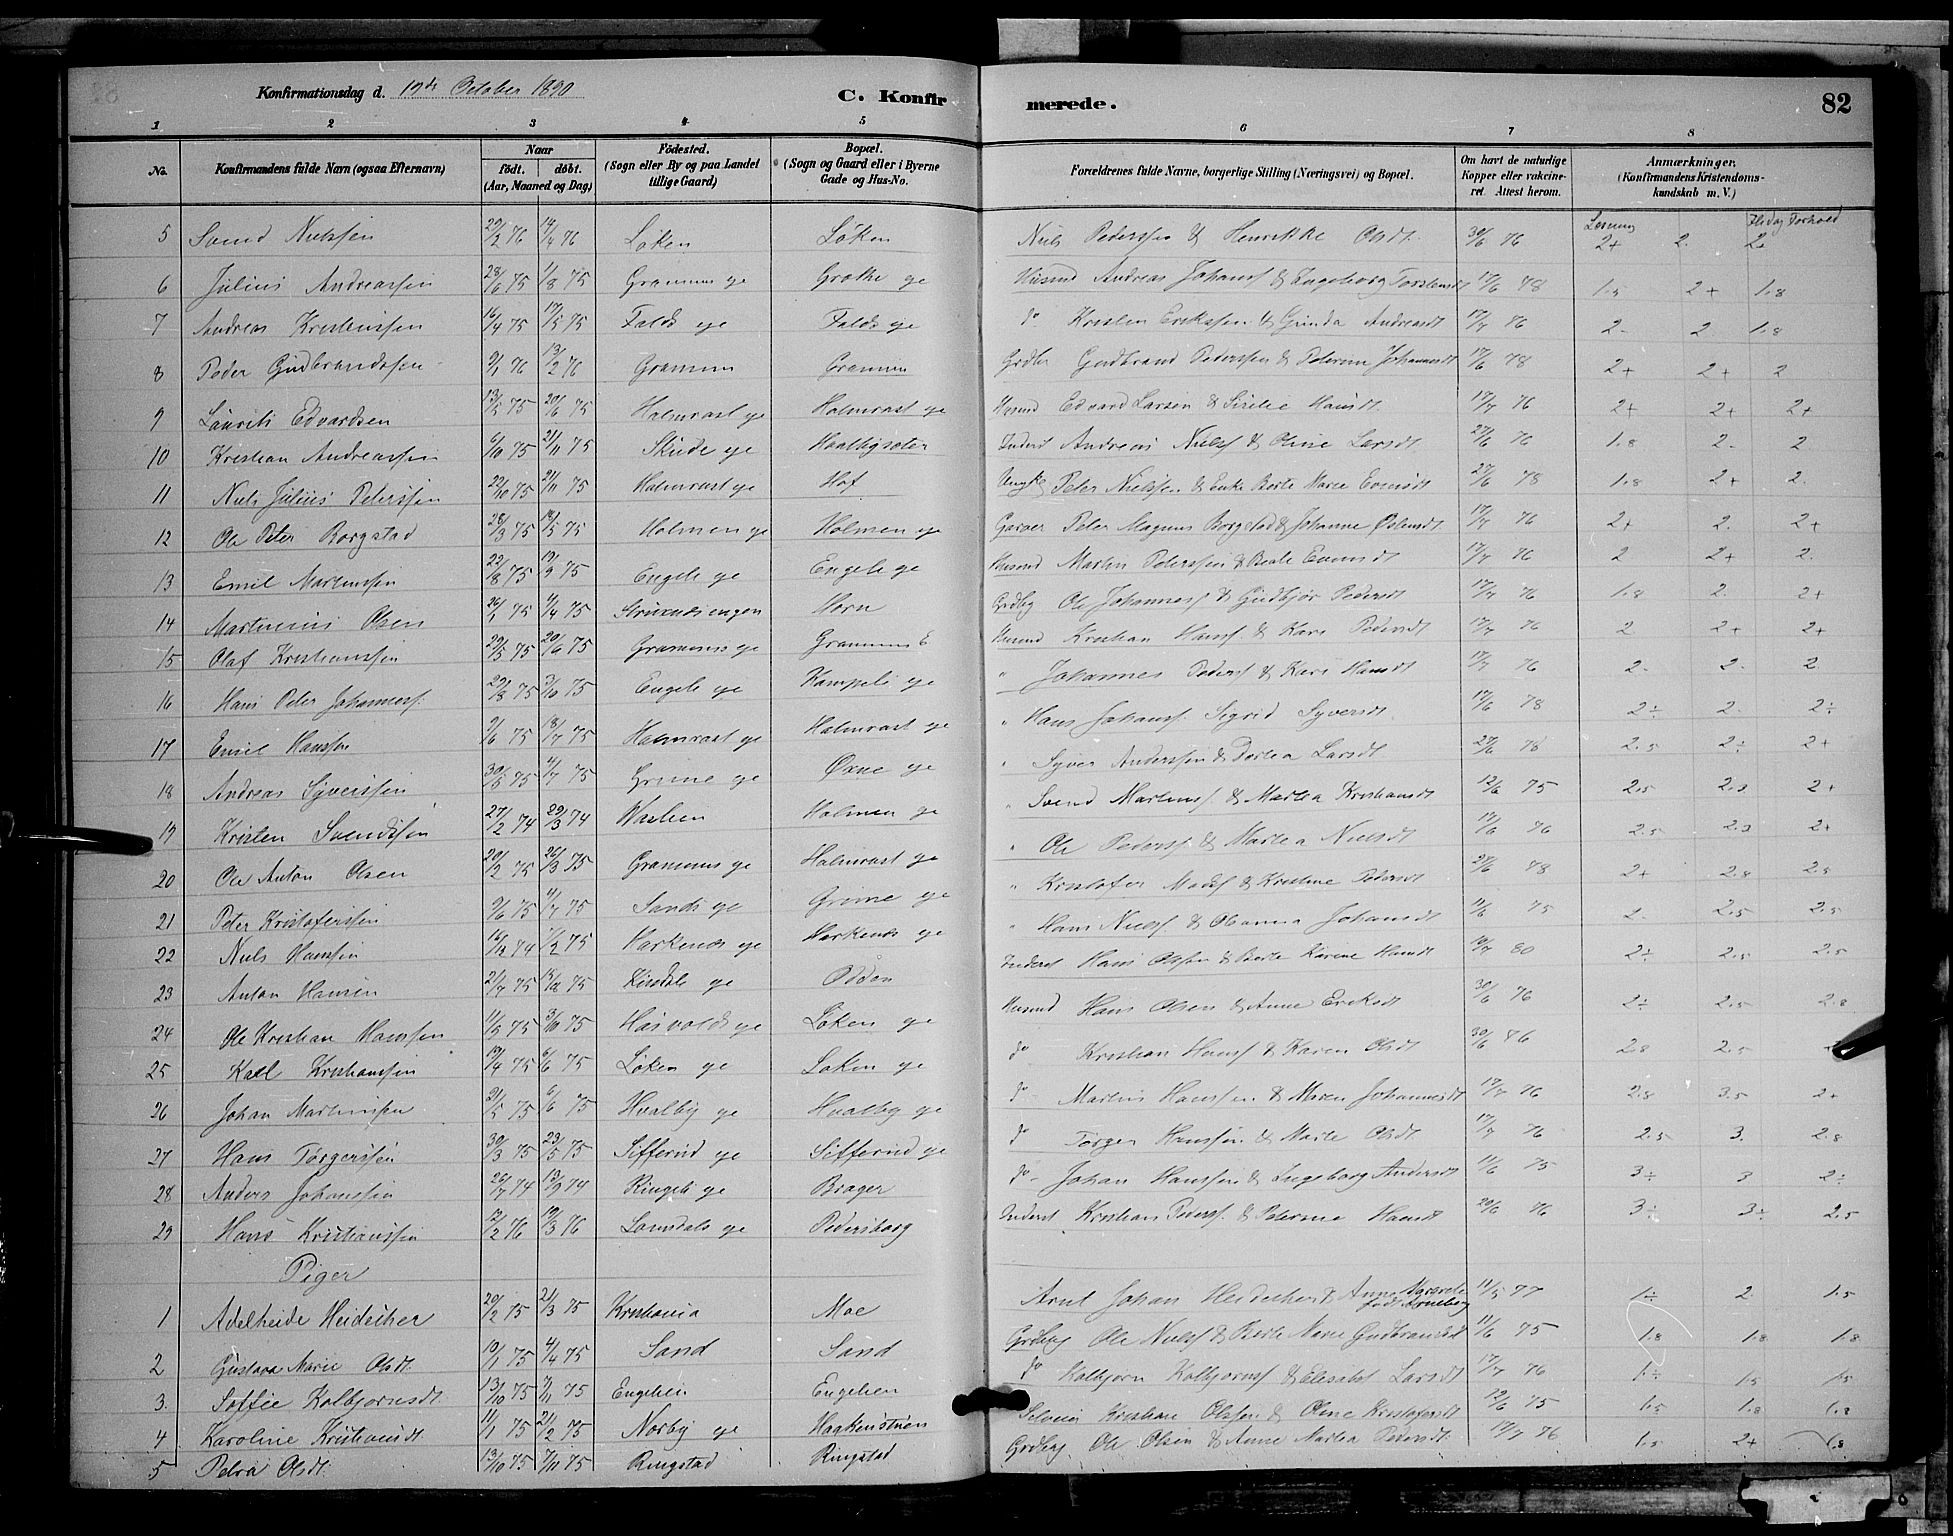 Konfirmationsdag d. 19de October 1890 C. Konfirmerede. 82
1 2 3 4 5 6 7 8
No. Konfirmandens fulde Navn (ogsaa Efternavn) Naar født. døbt. (Aar, Maaned og Dag) Fødested. (Sogn eller By og paa Landet tillige Gaard) Bopæl. (Sogn og Gaard eller i Byerne Gade og Hus-No. Forældrenes fulde Navne, borgerlige Stilling (Næringsvei) og Bopæl. Om havt de naturlige Kopper eller vaccineret. Attest herom. Anmærkninger. (Konfirmandens Kristendomskundskab m. V.)
Flid og Forhold
5 Svend Nielssen 29/2 76 17/4 76 Løken Løken Niels Pederssen & Henrikke Olsdt. 30/6 76 2+ 2. 2+
6 Julius Andreassen 28/6 75 1/8 75 Gramum eje Grøthe eje Husmd Andreas Johanss & Ingeborg Torstensdt 17/6 78 1.5 2+ 1.8
7 Andreas Kristenssen 16/4 75 17/5 75 Falds eje Falds eje do Kristen Erikssen & Gunda Andreasdt 17/7 76 2- 2 1.8
8 Peder Gudbrandssen 9/1 76 13/2 76 Gramum Gramum Grdbr Gudbrand Pederssen & Peterine Johannesdt 17/6 78 2+ 2+ 2
9 Laurits Edvardsen 13/5 75 20/6 75 Halmrast eje Halmrast eje Husmd Edvard Larsen & Sirilie Hansdt. 17/7 76 2+ 2+ 2+
10 Kristian Andreassen 6/10 75 21/11 75 Skinde eje Andreas Nielss & Oline Larsdt. 27/6 76 1.8 2- 2
11 Niels Julius Peterssen 22/10 75 21/11 75 Halmrast eje Hof Peter Nielssen & Enke Berte Marie Evensdt 27/6 78 1.8 2+ 2.
12 Ole Peter Borgstad 28/3 75 18/5 75 Holmen eje Holmen eje Garver Peter Magnus Borgstad & Johanne 17/7 76 2+ 2. 2+
13 Emil Martinssen 22/8 75 19/9 75 Engeli eje Engeli eje Husmd Martin Peterssen & Berte Evensdt 17/7 76 2 2+ 2.
14 Martinius Olsen 26/1 75 4/4 75 Horn Grdbg Ole Johanness & Gudbjør Pedersdt 17/7 76 1.8 2. 2+
15 Olaf Kristianssen 22/5 75 20/6 75 Gramums eje Gramum E Husmd Kristian Hanss & Kari Pedersdt 17/7 76 2 2+ 2+
16 Hans Peter Johanness. 29/8 75 3/10 75 Engeli eje Kampeli eje " Johannes Pederss & Kari Hansdt 17/7 76 2- 2- 2.
17 Emil Hanssen 9/6 75 18/7 75 Halmrast eje Halmrast eje " Hans Johanss. Sigrid Syversdt. 17/6 78 2÷ 2. 2÷
18 Andreas Syverssen 30/5 75 4/7 75 Grime eje Oxne eje " Syver Anderssen & Dortea Larsdt 27/6 78 2.5 2÷ 2+
19 Kristen Svendsen 27/2 74 29/3 74 Holmen eje " Svend Martinss. & Martea Kristiansdt 12/6 75 2.5 2.3 2+
20 Ole Anton Olsen 20/2 75 26/3 75 Gramums eje Halmrast eje " Ole Pederss. & Martea Nielsdt 17/6 76 2.5 2.3 2+
21 Peter Kristoferssen 9/6 75 4/7 75 Sands eje Grime eje " Kristofer Madss & Kristine Pedersdt 27/6 78 2+ 2.8 2.5
22 Niels Hanssen 16/12 74 7/2 75 Harkenæs eje Harkenæs eje " Hans Nielss. & Oleanna Johansdt 11/6 75 2- 2.5 2.5
23 Anton Hansen 2/7 75 Odden Inderst Hans Olsen & Berte Karine Hansdt 19/7 80 2÷ 2.5 2.5
24 Ole Kristian Hanssen 11/9 75 3/10 75 Hasvolds eje Løken eje Husmd Hans Olsen & Anne Eriksdt 30/6 76 2÷ 2.5 2.8
25 Karl Kristianssen 19/4 75 6/6 75 Løken eje Løken eje do Kristian Hanss & Karen Olsdt 30/6 86 2.8 2.5
26 Johan Martinssen 21/5 75 6/6 75 Hvalby eje Hvalby eje do Martin Hanssen & Maren Johannesdt 17/7 76 2.8 3.5 2+
27 Hans Torgerssen 30/3 75 23/5 75 Sifferud eje Sifferud eje do Torger Hanssen & Marte Olsdt. 17/7 76 2.5 3. 2.8
28 Anders Johanssen 26/7 74 13/9 74 Ringeli eje Brager do Johan Hanssen & Ingeborg Andersdt 11/6 75 3÷ 3 2÷
29 Hans Kristianssen 12/2 76 19/3 76 Lamsdals eje Pedersborg Inderst Kristian Pederss. & Peterine Hansdt 20/6 76 3÷ 3÷ 2.5
Piger
1 Adelheide Heidecher 20/2 75 21/3 75 Kristiania Moe Arnt Johan Heidecher & Anne Margrete født Arneberg 11/5 77 1÷ 2 1.5
2 Gustava Marie Olsdt. 10/1 75 4/4 75 Sand Sand Grdbrg Ole Nielss & Berte Marie Gudbrandsdt 11/6 75 1.8 1.8 1.8
3. Soffie Kolbjørnsdt. 13/10 75 7/11 75 Engelien Engelien do Kolbjørn Kolbjørnss & Elisabet Larsdt 17/7 76 1÷ 1.5 1.5
4 Karoline Kristiansdt. 11/1 75 21/2 75 Norby eje Haakenstuen Selveier Kristian Olssen & Oline Kristofersdt 12/6 75 1.5 1.8 1.8
5 Petra Olsdt. 13/10 75 7/11 75 Ringstad Ringstad Grdbrg Ole Olsen & Anne Martea Pedersdt. 17/7 76 1.5 2+ 1.8